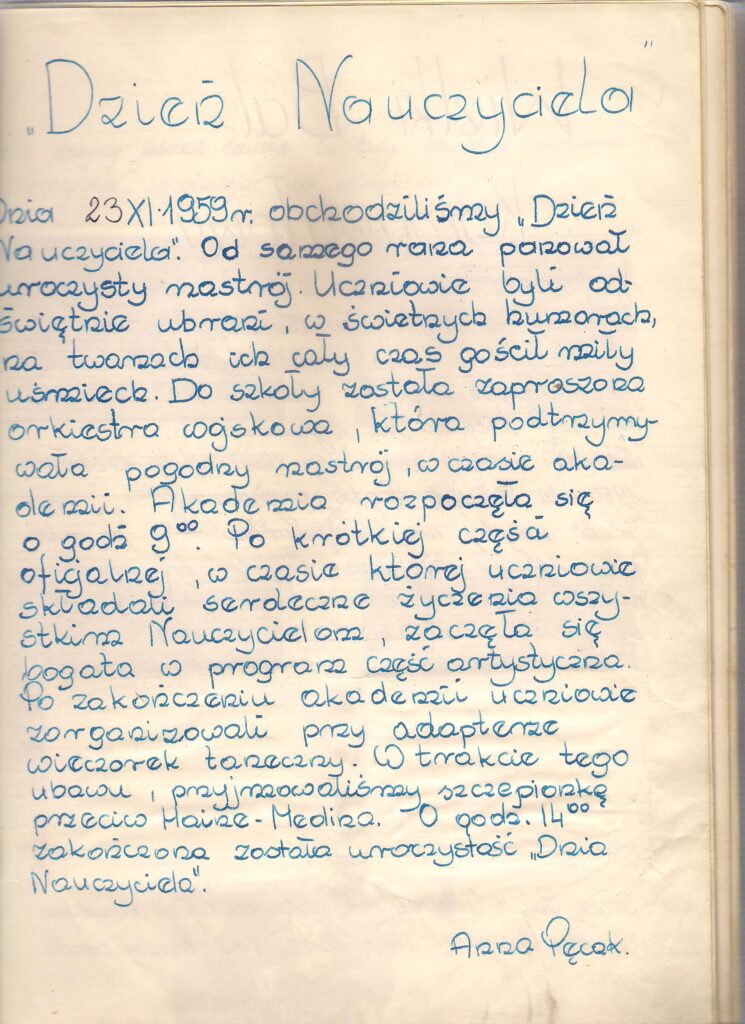 "Dzień Nauczyciela"
Dnia 23 XI.1959r. obchodziliśmy „Dzień
Nauczyciela". Od samego rana panował
uroczysty nastrój. Uczniowie byli od-
świętnie ubrani, w świetnych humorach,
na twarzach ich cały czas gościł miły
uśmiech. Do szkoły została zaproszona
orkiestra wojskowa, która podtrzymy-
wała pogodny nastrój, w czasie aka-
demii. Akademia rozpoczęła się
o godz 9⁰⁰. Po krótkiej części
oficjalnej, w czasie której uczniowie
składali serdeczne życzenia wszy-
stkim Nauczycielom, zaczęła się
bogata w program część artystyczna.
Po zakończeniu akademii uczniowie
zorganizowali przy adapterze
wieczorek taneczny. W trakcie tego
ubawu, przyjmowaliśmy szczepionkę
przeciw Haine-Medina. O godz. 14⁰⁰
zakończona została uroczystość „Dnia
Nauczyciela".
Anna Pęcak.